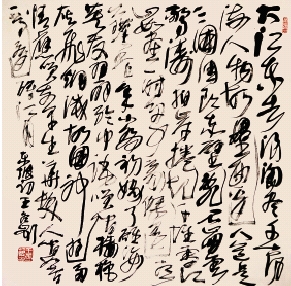 大江东去浪淘尽千古风
流人物故垒西边人道是
三国周郎赤壁乱石崩云
惊涛拍岸卷起千堆雪江
山如画一时多少豪杰遥想
公瑾当年小乔初嫁了雄姿
英发羽扇纶巾谈笑间樯橹
灰飞烟灭故国神游多
情应笑我早生华发人
江月
东坡词 王